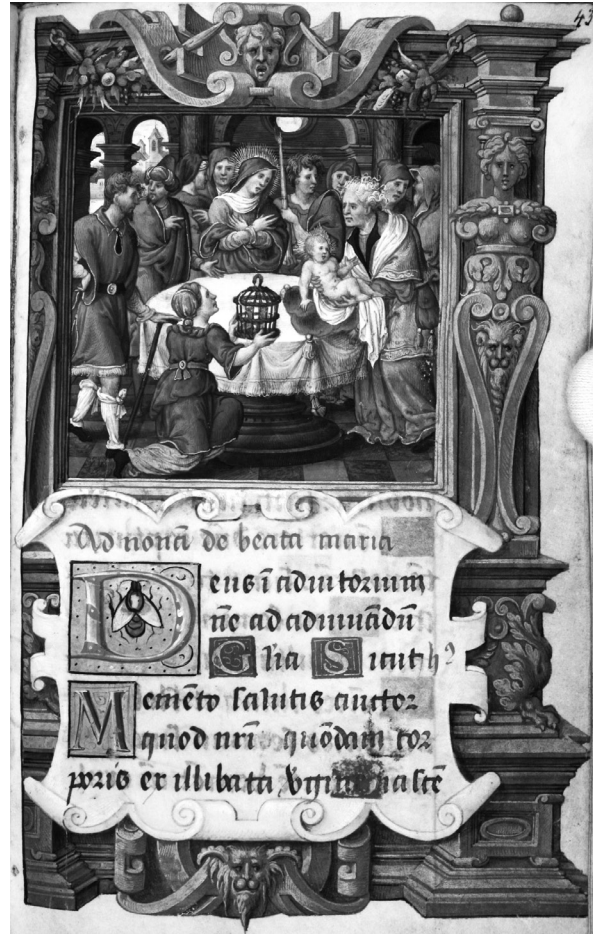 43
Ad nonā de beata maria
Deus ī adiutorium
ne ad adiuuādū
Glia Sicut
Memēto salutis auctor
quod nr̄i quōdam cor
poris ex illibata